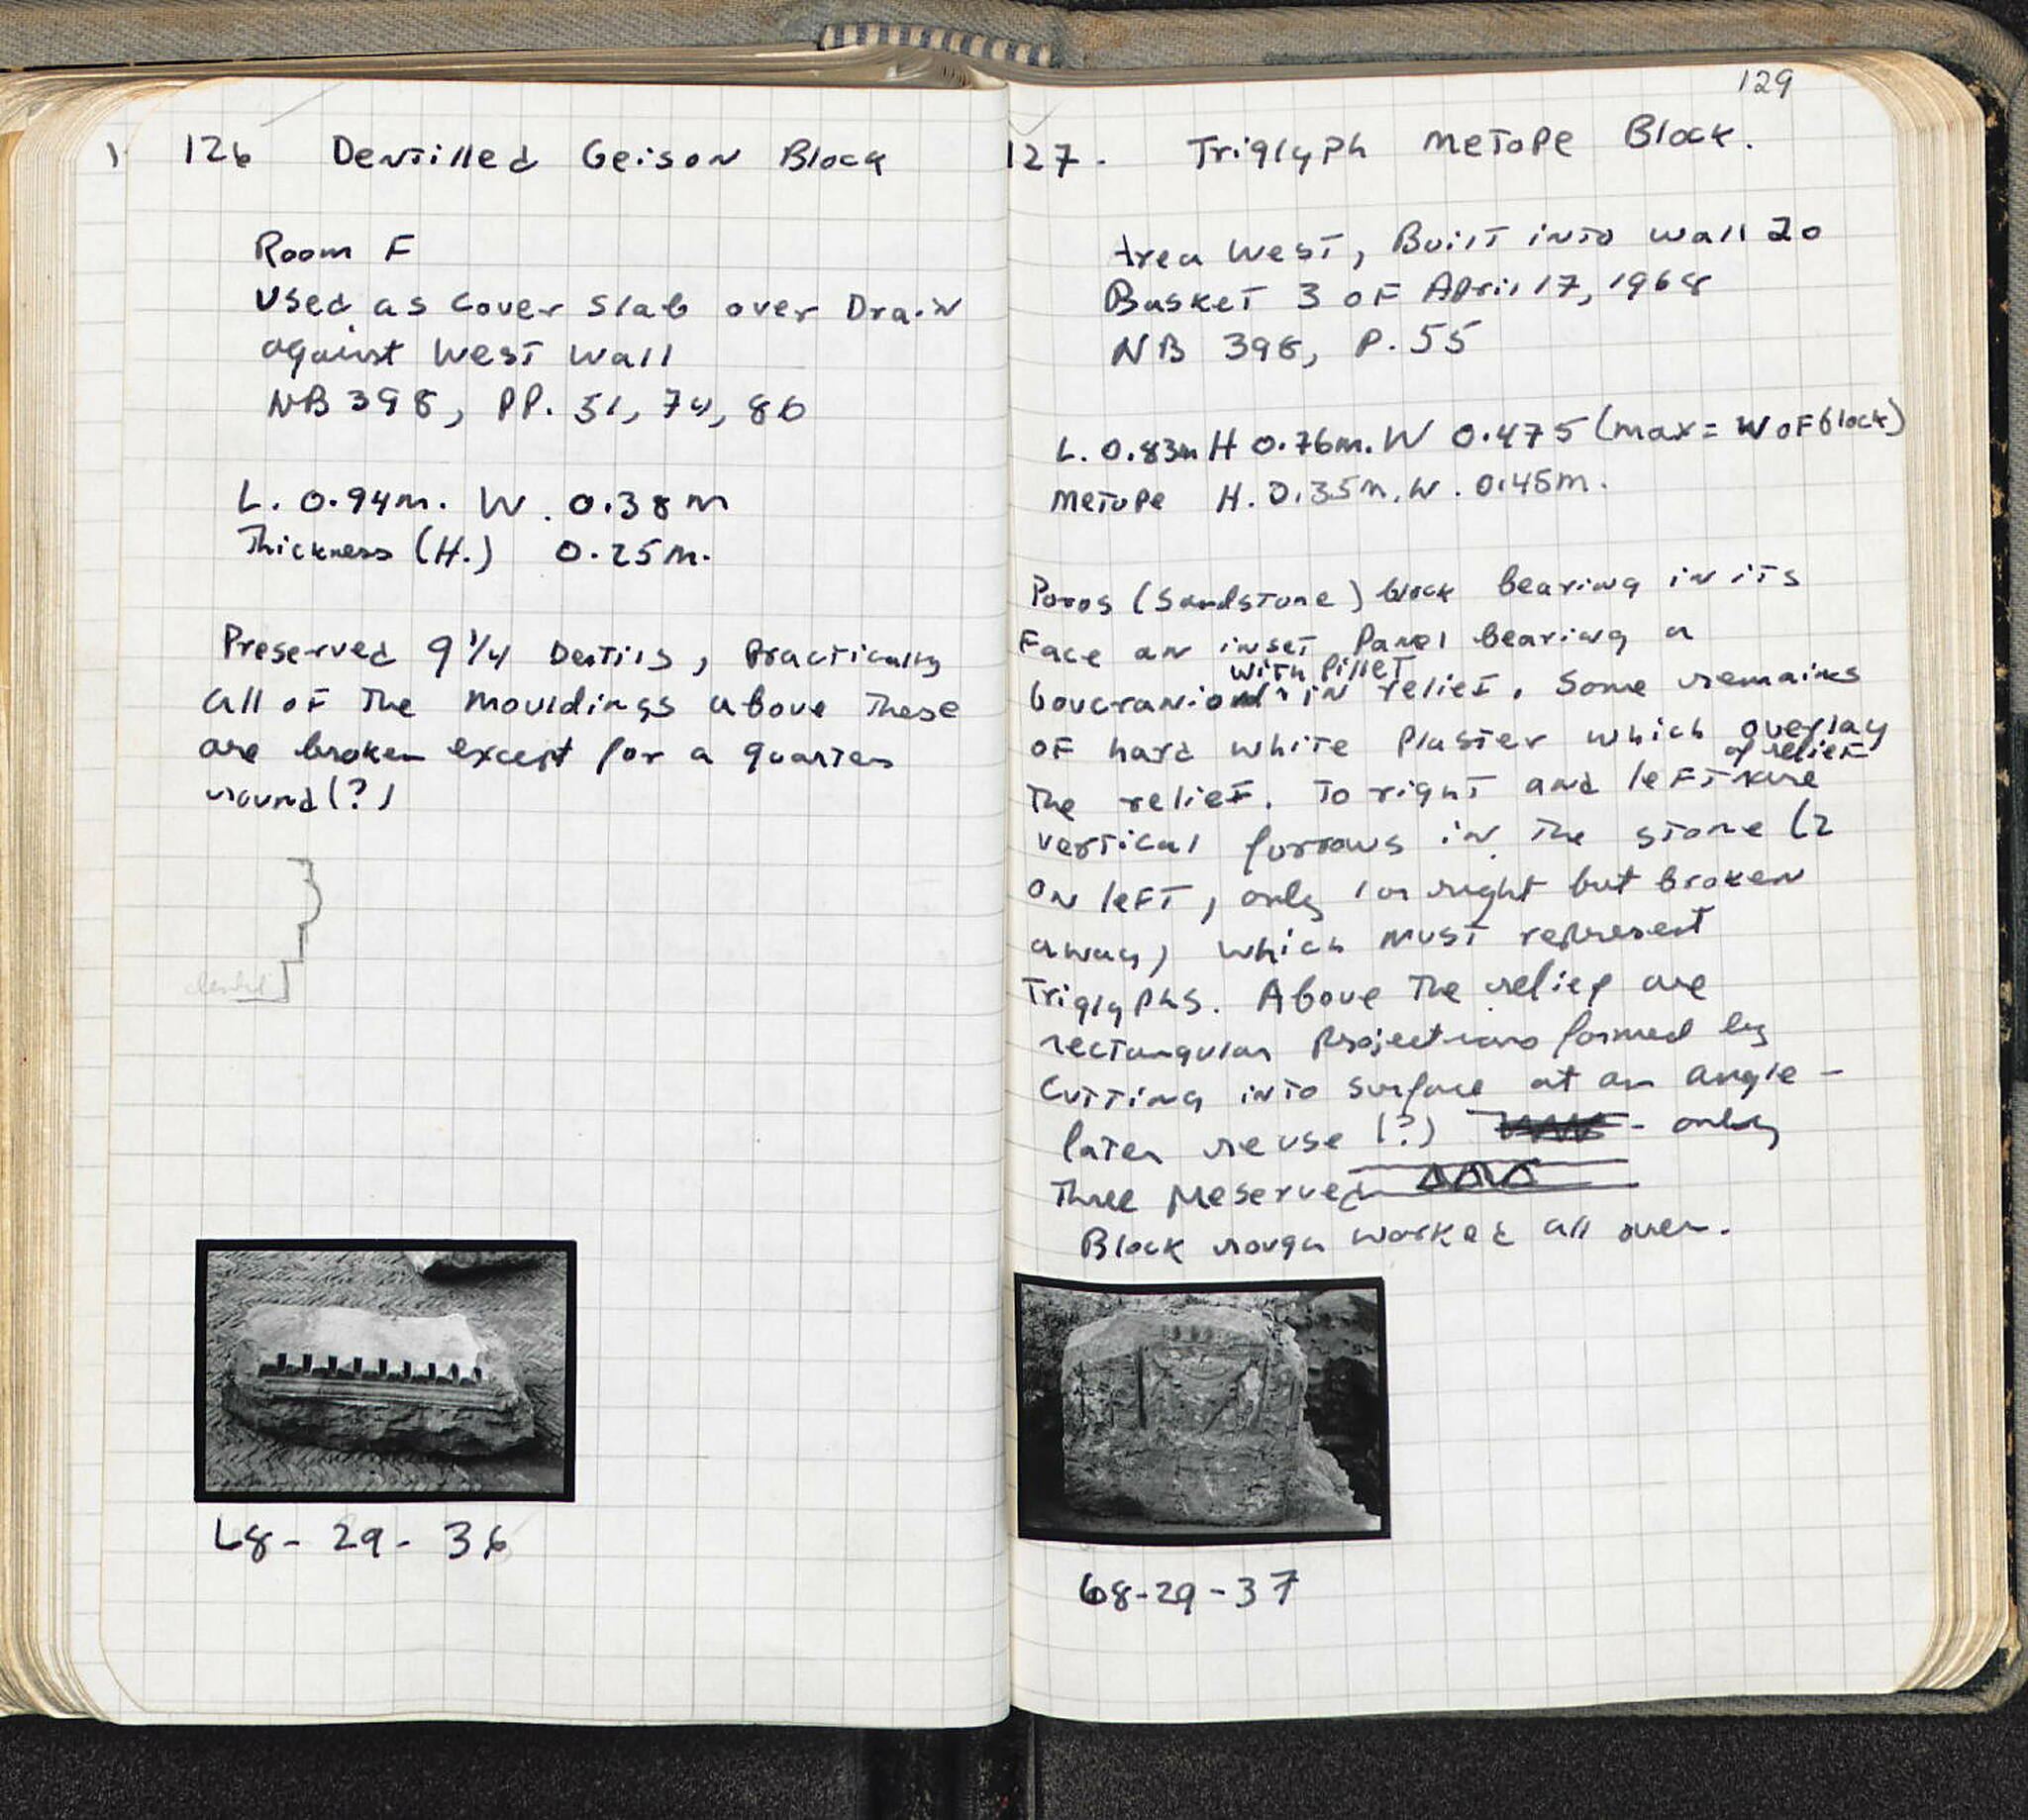 126 Dentilled Geison Block
Room F
Used as cover slab over Drain
against West Wall
NB 398, PP. 51, 74, 86
L. 0.94m. W. 0.38m
Thickness (H.) 0.25m.
Preserved 9 1/4 Dentils, Practically
all of the mouldings above these
are broken except for a quarter
round (?)
dentil
68-29-36
129
127. Triglyph Metope Block.
Area West, Built into wall 20
Basket 3 of April 17, 1968
NB 398, P. 55
L. 0.83m H 0.76m. W 0.475 (max = W of block)
Metope H. 0.35m. W. 0.45m.
Poros (Sandstone) block bearing in its
Face an inset Panel bearing a
with fillet
boucranion in relief. Some remains
of hard white Plaster which overlay
of relief
the relief. To right and left are
vertical furrows in the stone (2
on left, only 1 on right but broken
away) which must represent
Triglyphs. Above the relief are
rectangular Projections formed by
cutting into surface at an angle -
later reuse (?) - only
three preserved
Block rough worked all over.
68-29-37